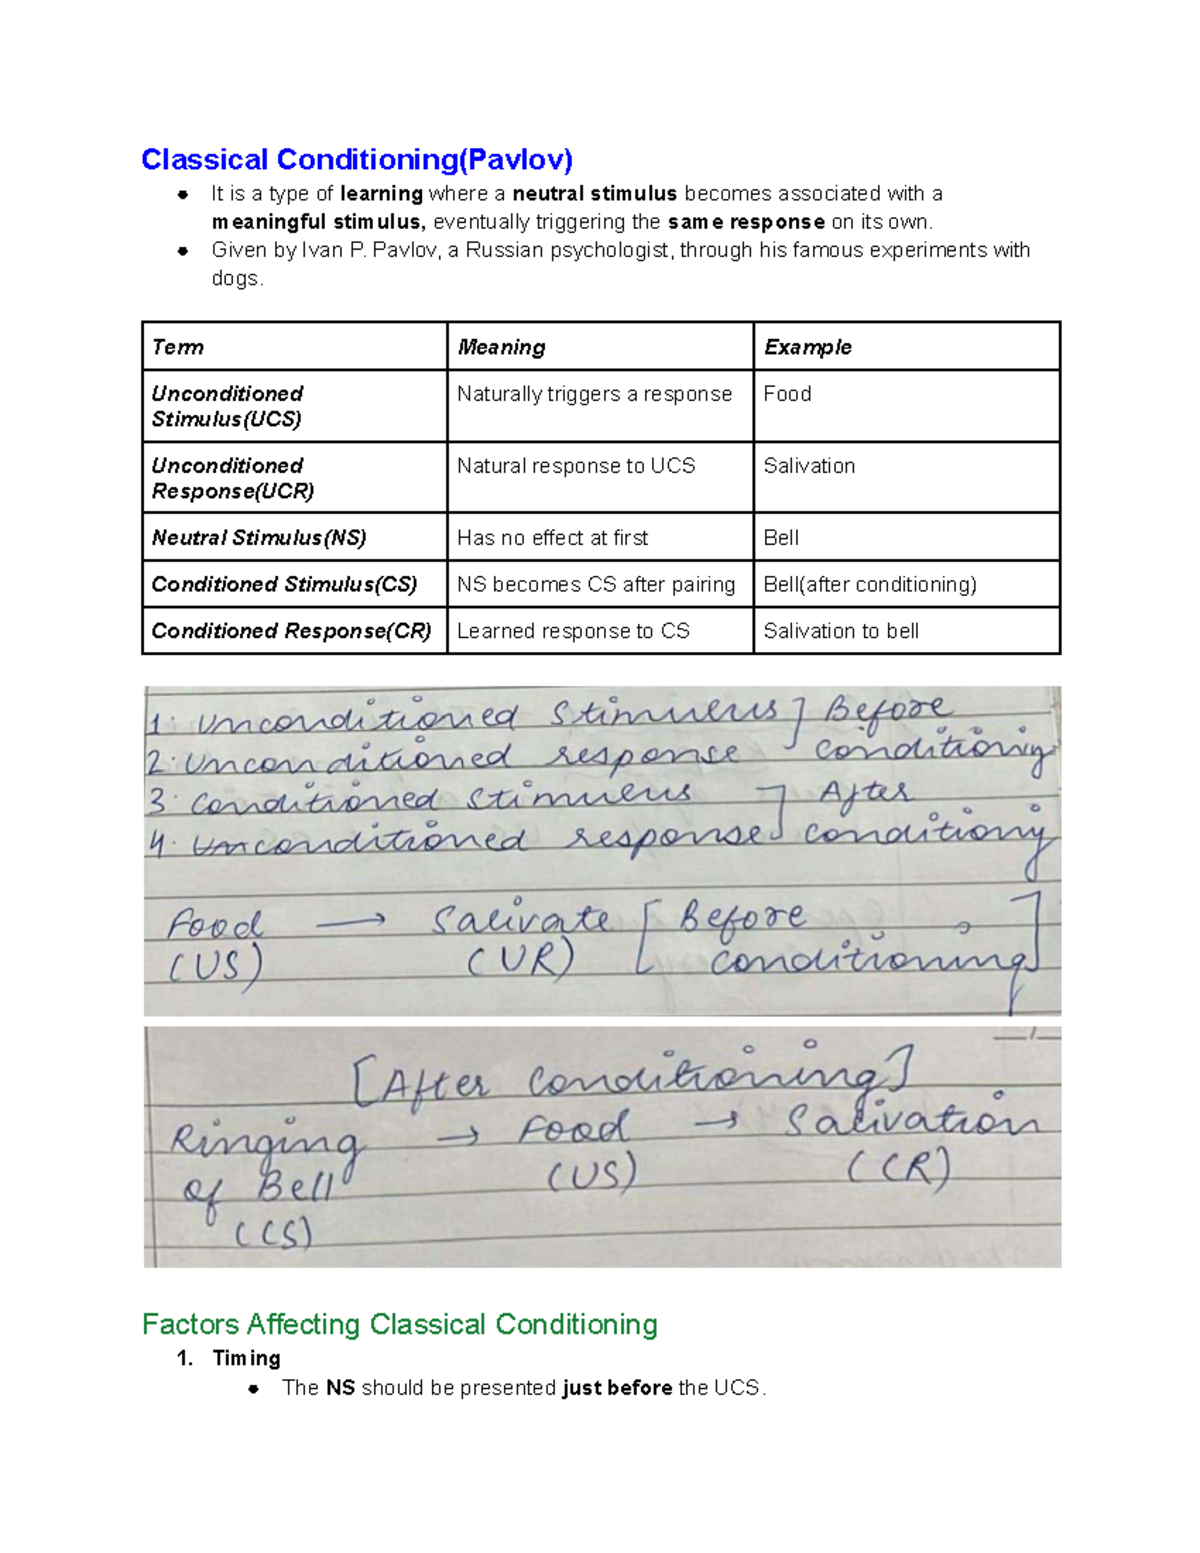 Classical Conditioning(Pavlov)
● It is a type of learning where a neutral stimulus becomes associated with a
meaningful stimulus, eventually triggering the same response on its own.
● Given by Ivan P. Pavlov, a Russian psychologist, through his famous experiments with
dogs.
Term Meaning Example
Unconditioned Naturally triggers a response Food
Stimulus(UCS)
Unconditioned Natural response to UCS Salivation
Response(UCR)
Neutral Stimulus(NS) Has no effect at first Bell
Conditioned Stimulus(CS) NS becomes CS after pairing Bell(after conditioning)
Conditioned Response(CR) Learned response to CS Salivation to bell
1. Unconditioned Stimulus ] Before
2. Unconditioned response conditioning
3. Conditioned Stimulus ] After
4. Unconditioned response conditiony
Food → Salivate [ Before
(US) (UR) conditioning]
[After Conditioning]
Ringing → Food → Salivation
of Bell (US) (CR)
(CS)
Factors Affecting Classical Conditioning
1. Timing
● The NS should be presented just before the UCS.